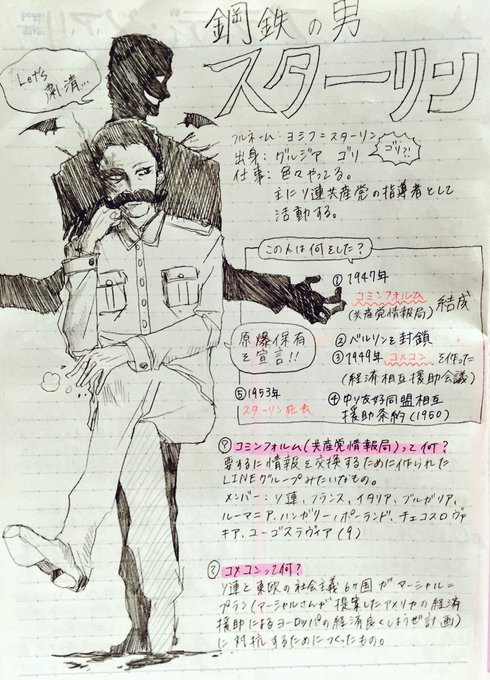 鋼鉄の男
スターリン
Let's
粛清…
フルネーム：ヨシフ=スターリン
出身：グルジア ゴリ
ゴリ?!
仕事：色々やってる。
主にソ連共産党の指導者として
活動する。
この人は何をした？
① 1947年
コミンフォルム 結成
(共産党情報局)
② ベルリンを封鎖
③ 1949年 コメコン を作った
(経済相互援助会議)
④ 中ソ友好同盟相互
援助条約 (1950)
原爆保有
を宣言!!
⑤ 1953年
スターリン死去
? コミンフォルム(共産党情報局)って何？
要するに情報を交換するために作られた
LINEグループみたいなもの。
メンバー：ソ連、フランス、イタリア、ブルガリア、
ルーマニア、ハンガリー、ポーランド、チェコスロヴァ
キア、ユーゴスラヴィア (9)
? コメコンって何？
ソ連と東欧の社会主義6ヶ国がマーシャル=
プラン(マーシャルさんが提案したアメリカの経済
援助によるヨーロッパの経済良くしようぜ計画)
に対抗するためにつくったもの。